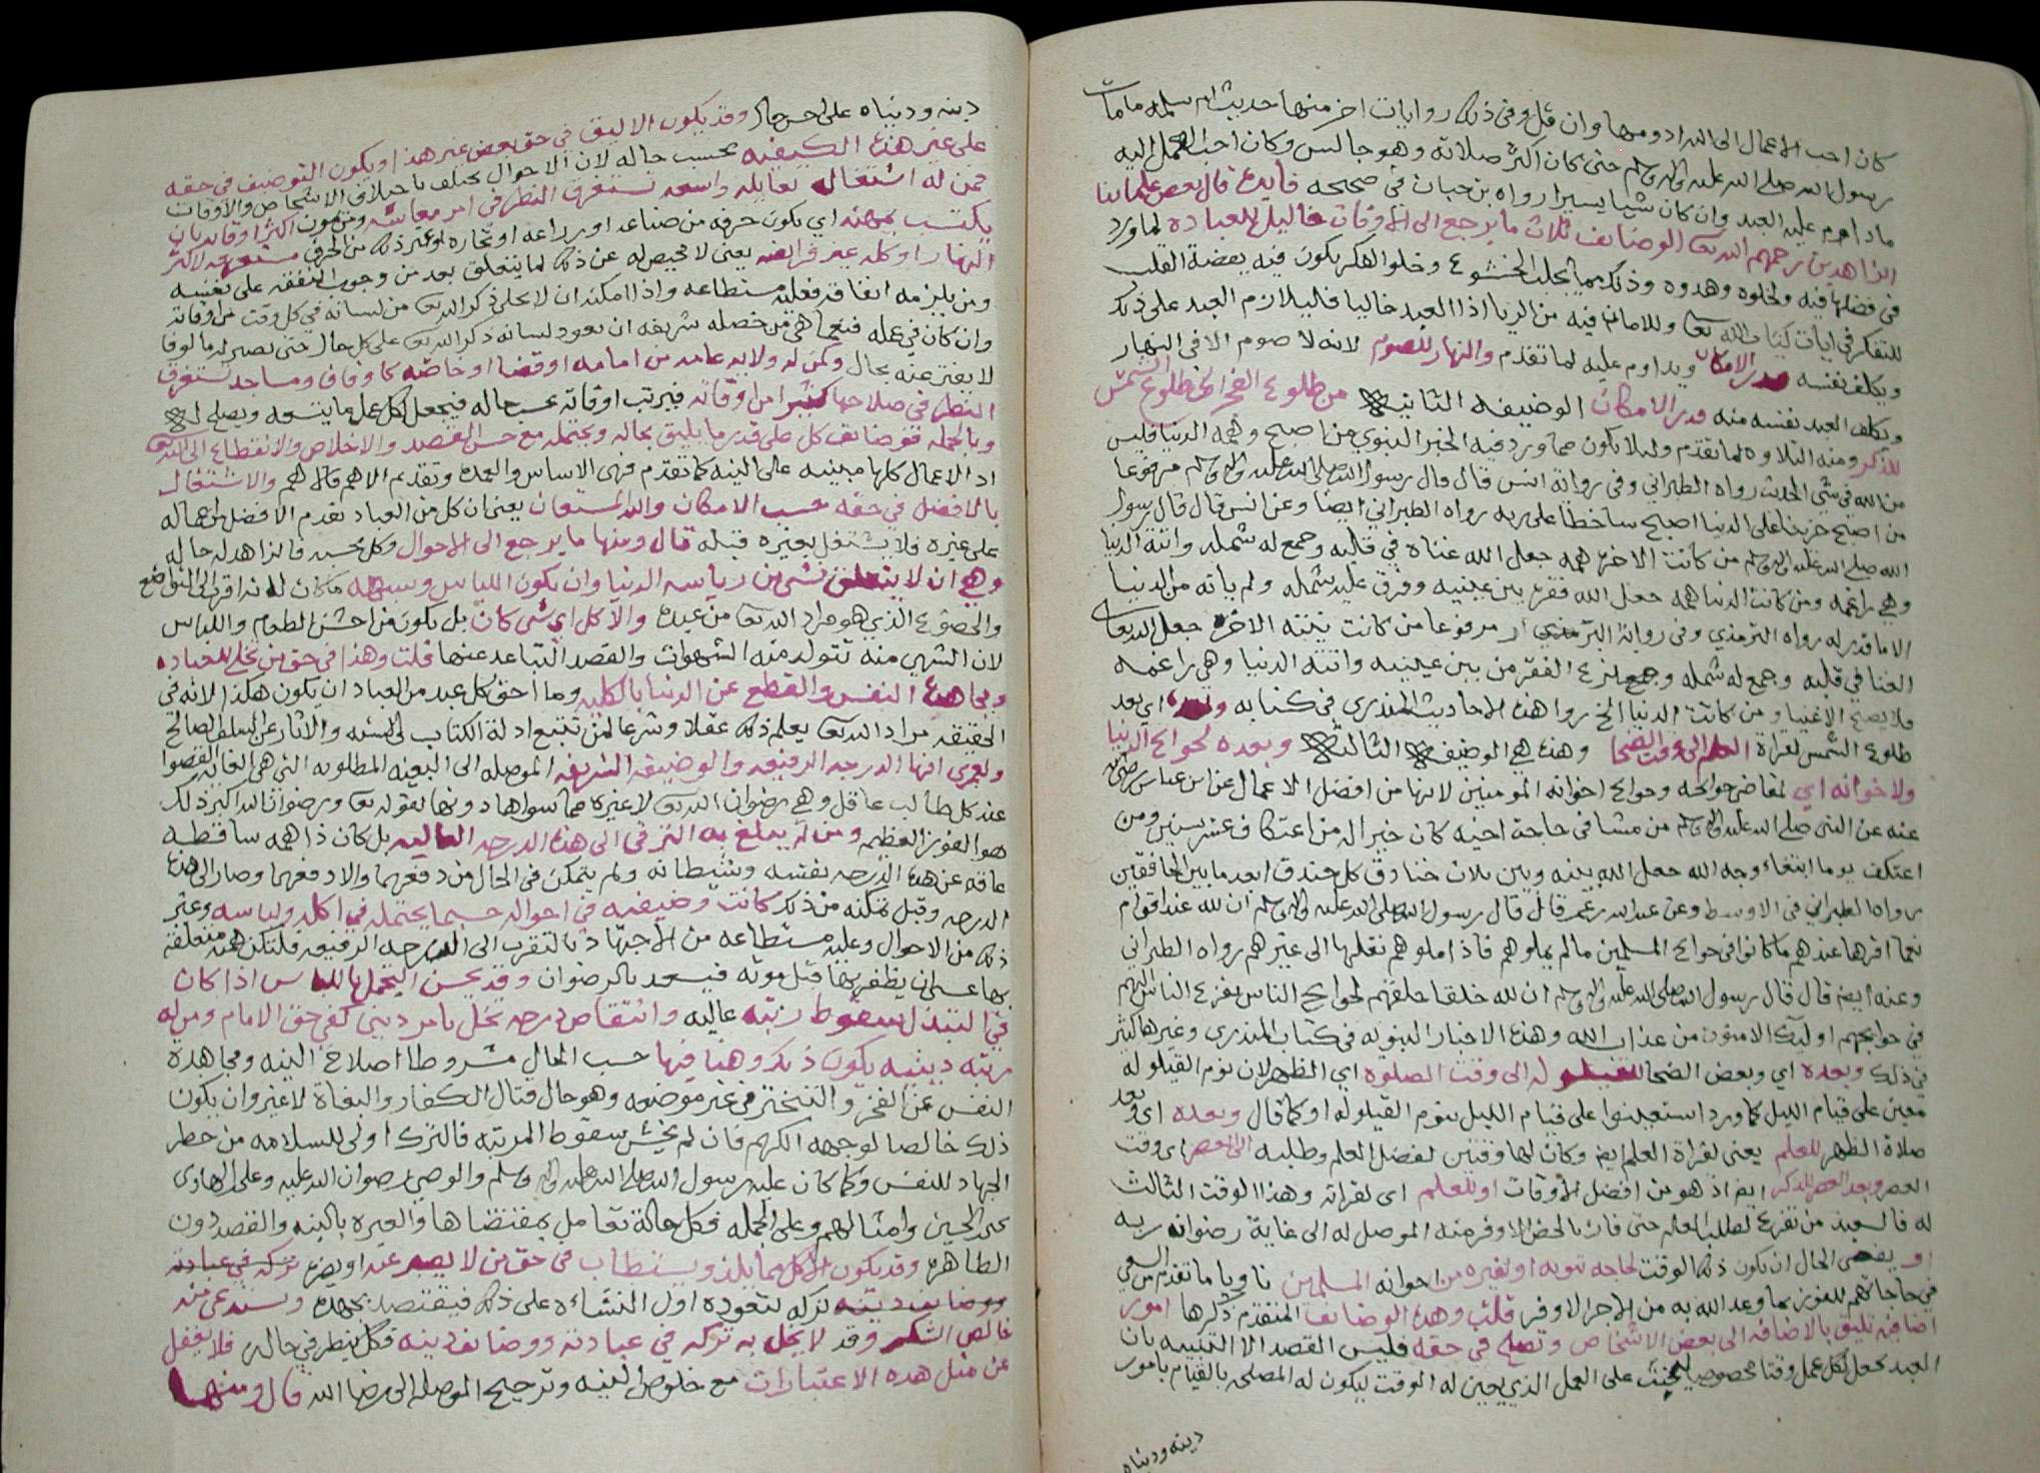 كان احب الاعمال الى الله ادومها وان قل وفي ذلك روايات اخر منها حديث ام سلمه ما مات
رسول الله صلى الله عليه واله وسلم حتى كان اكثر صلاته وهو جالس وكان احب العمل اليه
ما داوم عليه العبد وان كان شيا يسيرا رواه بن حبان في صحيحه فايده قال بعض علمائنا
الزاهدين رحمهم الله تعا الوضايف ثلاث ما يرجع الى الاوقات فالليل للعبادة لما ورد
في فضلها فيه ولخلوه وهدوه وذلك مما يجلب الخشوع وخلو الفكر يكون فيه يقضة القلب
للتفكر في ايات كتاب الله تعا وللامان فيه من الريا اذا العبد خاليا فليلازم العبد على ذلك
ويكلف نفسه قدر الامكان ويداوم عليه لما تقدم والنهار للصوم لانه لا صوم الا في النهار
ويكلف العبد نفسه منه قدر الامكان الوضيفه الثانيه من طلوع الفجر الى طلوع الشمس
للذكر ومنه التلاوه لما تقدم ولئلا يكون مما ورد فيه الخبر النبوي من اصبح وهمه الدنيا فليس
من الله في شي الحديث رواه الطبراني وفي رواية انس قال قال رسول الله صلى الله عليه واله وسلم مرفوعا
من اصبح حزينا على الدنيا اصبح ساخطا على ربه رواه الطبراني ايضا وعن انس قال قال رسول
الله صلى الله عليه واله وسلم من كانت الاخره همه جعل الله غناه في قلبه وجمع له شمله واتته الدنيا
وهي راغمه ومن كانت الدنيا همه جعل الله فقره بين عينيه وفرق عليه شمله ولم ياته من الدنيا
الا ما قدر له رواه الترمذي وفي رواية البزار مرفوعا من كانت نيته الاخره جعل الله تعا
الغنا في قلبه وجمع له شمله ونزع الفقر من بين عينيه واتته الدنيا وهي راغمه
فلا يصبح الا غنيا ومن كانت الدنيا الخ روا هذه الاحاديث المنذري في كتابه وبعده اي بعد
طلوع الشمس لقراة العلم الى وقت الضحا وهذه هي الوضيفه الثالثه وبعده لحوائج الدنيا
ولاخوانه اي لقاضي حوائجه وحوائج اخوانه المومنين لانها من افضل الاعمال عن ابن عباس رضي الله
عنه عن النبي صلى الله عليه واله وسلم من مشا في حاجة اخيه كان خير اله من اعتكاف عشر سنين ومن
اعتكف يوما ابتغاء وجه الله جعل الله بينه وبين ثلاث خنادق كل خندق ابعد ما بين الخافقين
رواه الطبراني في الاوسط وعن عبدالله بن عمر قال قال رسول الله صلى الله عليه واله وسلم ان لله عند اقوام
نعما اقرها عندهم ما كانوا في حوائج المسلمين ما لم يملوهم فاذا ملوهم نقلها الى غيرهم رواه الطبراني
وعنه ايضا قال قال رسول الله صلى الله عليه واله وسلم ان لله خلقا خلقهم لحوايج الناس يفزع الناس اليهم
في حوايجهم اوليك الامنون من عذاب الله وهذه الاخبار النبويه في كتاب المنذري وغيرها كثير
في ذلك وبعده اي وبعض الضحا القيلوله الى وقت الصلوه اي الظهر لان نوم القيلوله
معين على قيام الليل كما ورد استعينوا على قيام الليل بنوم القيلوله او كما قال وبعده اي بعد
صلاة الظهر للعلم يعني لقراة العلم ايضا وكان لها وقتين لفضل العلم وطلبه الى العصر اي وقت
العصر وبعد العصر للذكر ايضا اذ هو من افضل الاوقات او للعلم اي لقراته وهذا الوقت الثالث
له فالسعيد من تفرغ لطلب العلم حتى فاز بالحض الاوفر منه الموصل له الى غاية رضوان ربه
او يقضي الحال ان يكون ذلك الوقت لحاجه تنوبه او لغيره من اخوانه المسلمين ناويا ما تقدم من السعي
في حاجاتهم للفوز بما وعد الله به من الاجر الاوفر قلت وهذه الوضايف المتقدم ذكرها امور
اضافيه تليق بالاضافه الى بعض الاشخاص وتصلح في حقه فليس القصد الا التنبيه بان
العبد يجعل لكل عمل وقتا مخصوصا على العمل الذي يعين له الوقت ليكون له المصلحه بالقيام بامور
دينه ودنياه
دينه ودنياه على احسن حال وقد يكون الاليق في حق بعض غير هذا ويكون التوضيف في حقه
على غير هذه الكيفيه بحسب حاله لان الاحوال تختلف باختلاف الاشخاص والاوقات
فمن له اشتغال بعايله واسعه تستغرق النظر في امر معاشه ومن يمون اكثر اوقاته بان
يكتسب بمهنه اي يكون حرفه من صناعه او زراعه او تجاره او غير ذلك من الحرف مستغرقه لاكثر
النهار او كله غير فرائضه يعني لا محيص له عن ذلك لما يتعلق بعد من وجوب النفقه على نفسه
ومن يلزمه انفاقه فعليه مستطاعه واذا امكنه ان لا يخلي ذكر الله تعا من لسانه في كل وقت من اوقاته
وان كان في عمله فنعما هي من خصله شريفه ان يعود لسانه ذكر الله تعا على كل حال حتى يصير له مالوفا
لا يفتر عنه بحال وكمن له ولايه عامه من امامه او قضا او خاصه كاوقاف ومساجد تستغرق
النظر في صلاحها كثيرا من اوقاته فيرتب اوقاته بحسب حاله فيجعل لكل عمل ما يتسعه ويصلح له
وبالجمله فوضائف كل على قدر ما يليق بحاله ويحتمله مع حسن القصد والاخلاص والانقطاع الى الله تعا
اذ الاعمال كلها مبنيه على النيه كما تقدم فهي الاساس والعمده وتقديم الاهم فالاهم والاشتغال
بالافضل في حقه حسب الامكان والله المستعان يعني ان كل من العباد يقدم الافضل من اعماله
على غيره فلا يشتغل بغيره قبله قال ومنها ما يرجع الى الاحوال وكل بحسبه فالزاهد له حاله
وهي ان لا يتعلق بشي من رياسه الدنيا وان يكون اللباس وسيله ما كان له اقرب الى التواضع
والخضوع الذي هو مراد الله تعا من عبده والاكل اي شي كان بل يكون من اخشن الطعام واللباس
لان الشهي منه تتولد منه الشهوات والقصد التباعد عنها قلت وهذا في حق من تخلى للعباده
ومجاهدة النفس والقطع عن الدنيا بالكليه وما احق كل عبد من العباد ان يكون هكذا لانه في
الحقيقه مراد الله تعا يعلم ذلك عقلا وشرعا لمن تتبع ادلة الكتاب والسنه والاثار عن السلف الصالح
ولعمري انها الدرجه الرفيعه والوضيفه الشريفه الموصله الى البغيه المطلوبه التي هي الغايه القصوا
عند كل طالب عاقل وهي رضوان الله تعا لا غيره مما سواها دونها لقوله تعا ورضوان الله اكبر ذلك
هو الفوز العظيم ومن لم يبلغ به الترقي الى هذه الدرجه العاليه بل كان ذا همه ساقطه
عاقه عن هذه الدرجه نفسه وشيطانه ولم يتمكن في الحال من دفعهما والا دفعهما وصار الى هذه
الدرجه وقبل تمكنه من ذلك كانت وضيفته في احواله حسبما يحتمله في اكله ولباسه وغير
ذلك من الاحوال وعليه مستطاعه من الاجتهاد بالتقرب الى الدرجه الرفيعه فلتكن همته متعلقه
بها عسى ان يظفر بها قبل موته فيسعد بالرضوان وقد يحسن التجمل باللباس اذا كان
في التبذل سقوط رتبه عاليه وانتقاص درجه تخل بامر ديني كفي حق الامام ومن له
مرتبه دينيه يكون ذلك وهنا فيها حسب الحال مشروطا اصلاح النيه ومجاهدة
النفس عن الفخر والتبختر في غير موضعه وهو حال قتال الكفار والبغاة لا غير وان يكون
ذلك خالصا لوجهه الكريم فان لم يخش سقوط المرتبه فالترك اولى للسلامه من خطر
الجهاد للنفس وكما كان عليه رسول الله صلى الله عليه واله وسلم والوصي رضوان الله عليه وعلى الهادي
يحيى بن الحسين وامثالهم وعلى الجمله فكل حاله تعامل بمقتضاها والعبره بالنيه والقصد دون
الظاهره وقد يكون الاكل مما يلذ ويستطاب في حق من لا يصبر عنه او يضره تركه في عبادته
ووضايف دينه تركه لتعوده اول النشاءه على ذلك فيقتصد بجهده ويستدعي منه
خالص الشكر وقد لا يخل به تركه في عبادته ووضائف دينه فكل ينظر في حاله فلا يغفل
عن مثل هذه الاعتبارات مع خلوص النيه وترجيح الموصله الى رضا الله قال ومنها